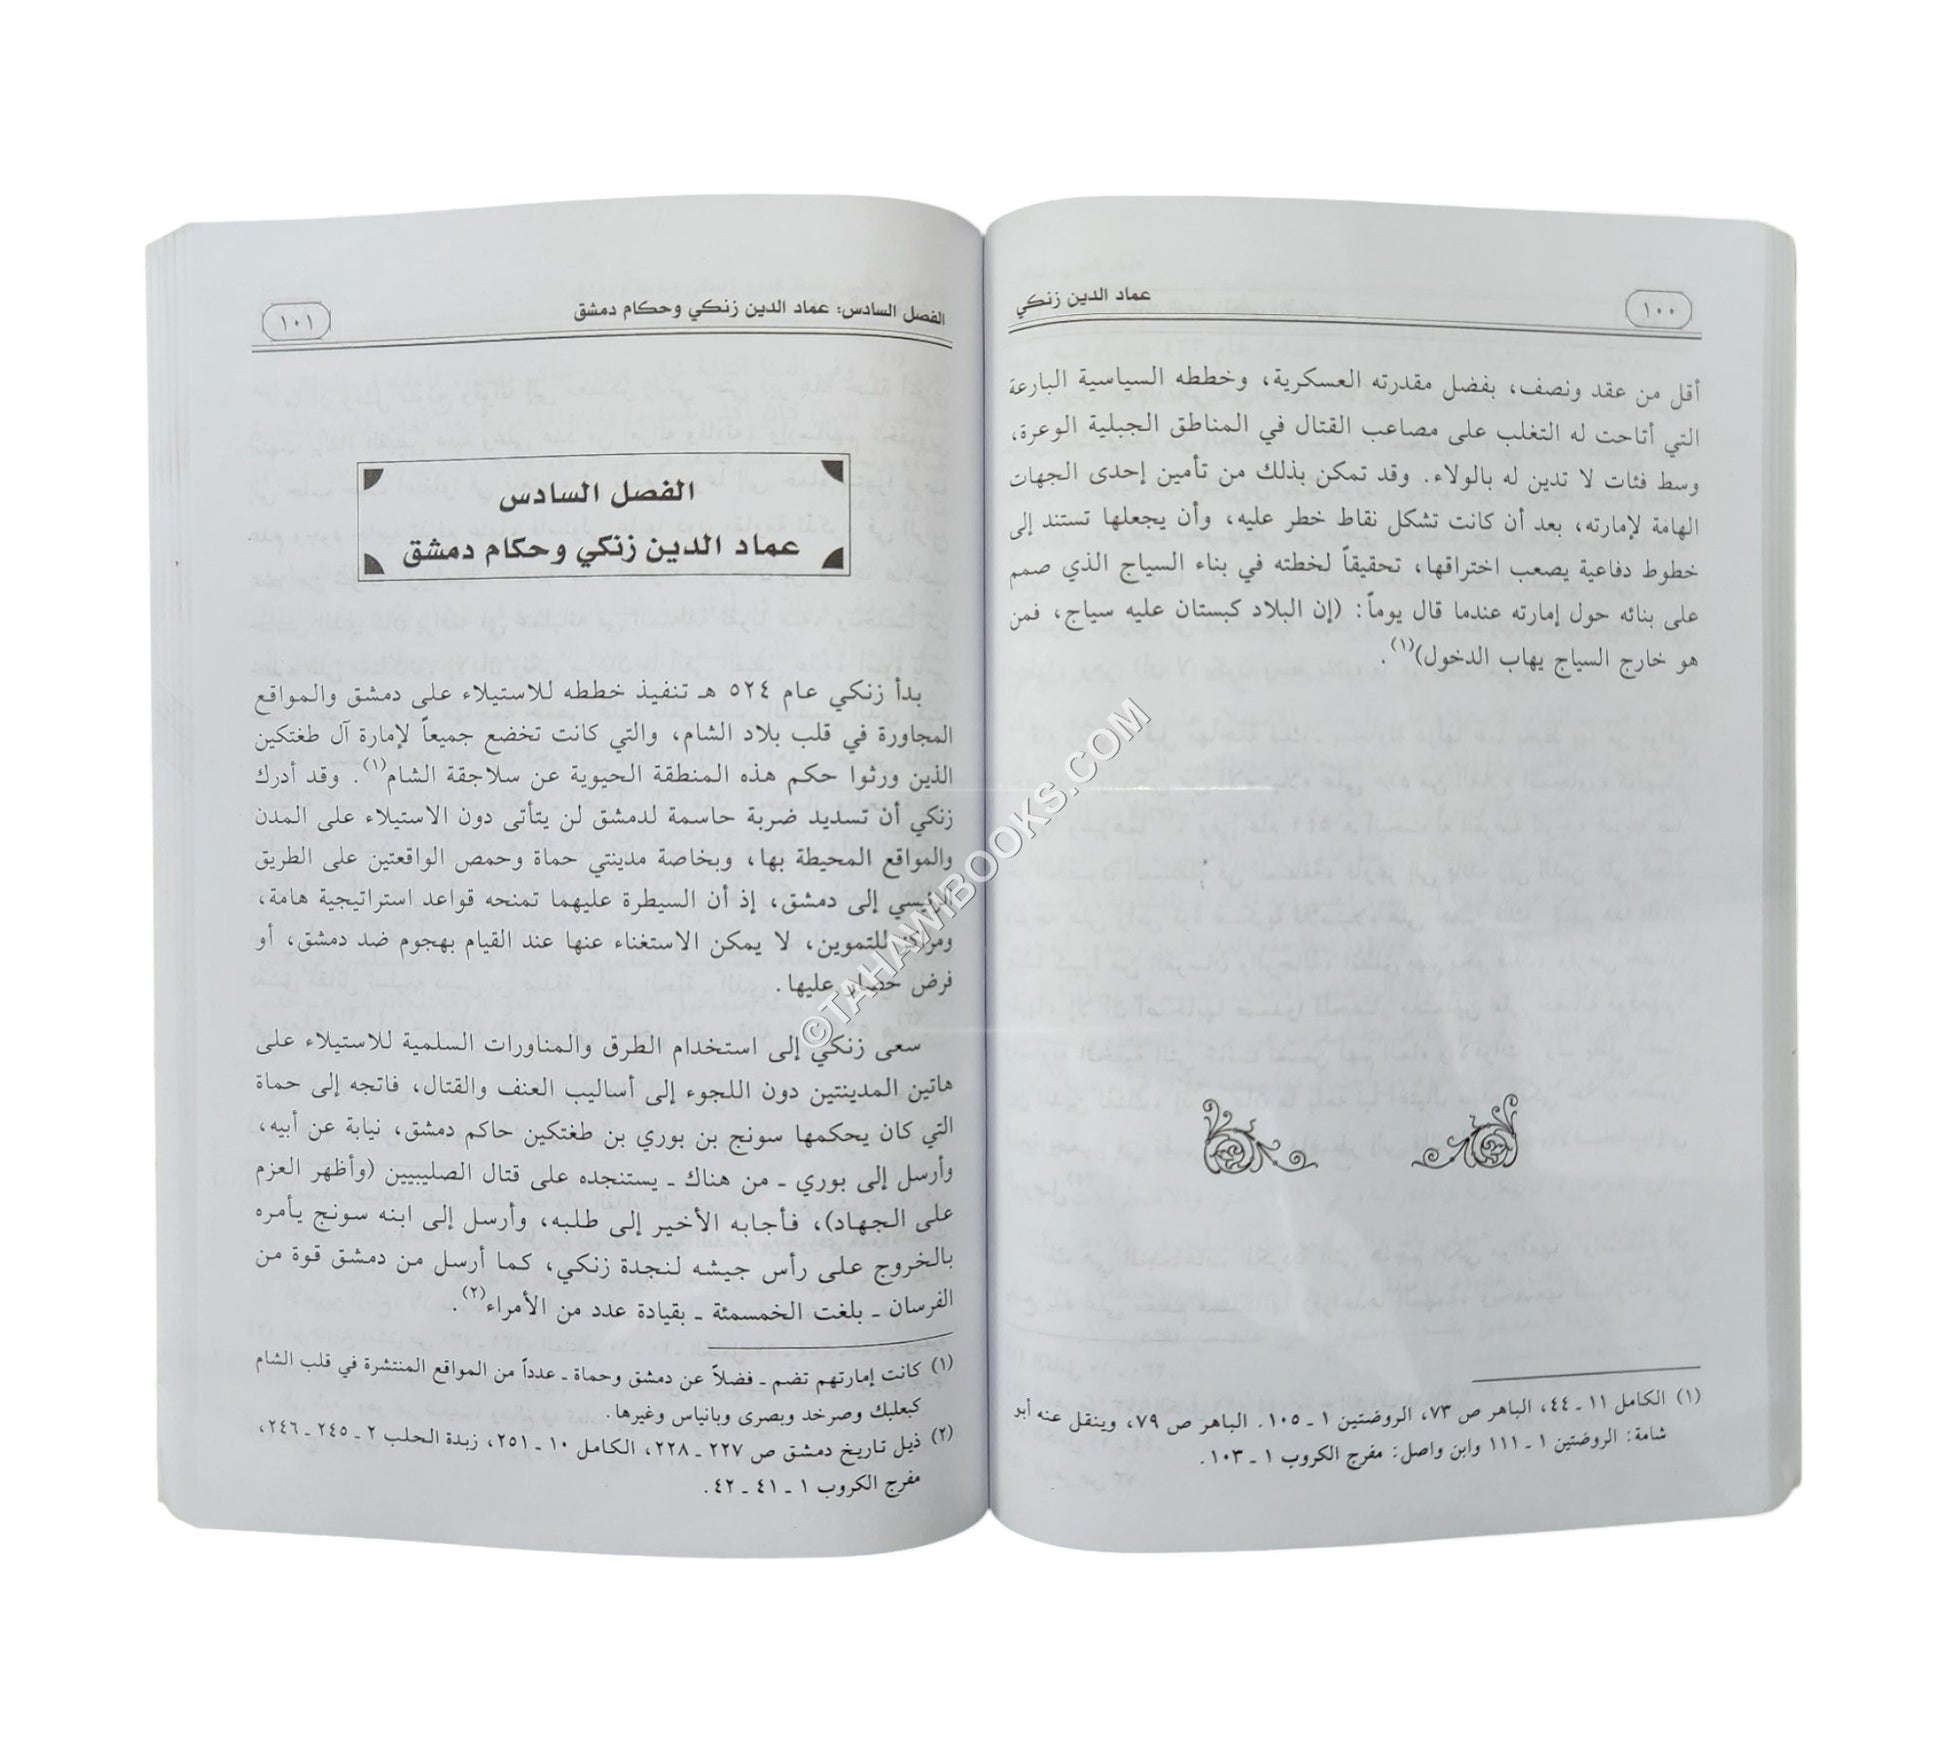 ١٠٠
عماد الدين زنكي
أقل من عقد ونصف، بفضل مقدرته العسكرية، وخططه السياسية البارعة
التي أتاحت له التغلب على مصاعب القتال في المناطق الجبلية الوعرة،
وسط فئات لا تدين له بالولاء. وقد تمكن بذلك من تأمين إحدى الجهات
الهامة لإمارته، بعد أن كانت تشكل نقاط خطر عليه، وأن يجعلها تستند إلى
خطوط دفاعية يصعب اختراقها، تحقيقاً لخطته في بناء السياج الذي صمم
على بنائه حول إمارته عندما قال يوماً: (إن البلاد كبستان عليه سياج، فمن
هو خارج السياج يهاب الدخول)(١).
(١) الكامل ١١ ـ ٤٤، الباهر ص ٧٣، الروضتين ١ ـ ١٠٥. الباهر ص ٧٩، وينقل عنه أبو
شامة: الروضتين ١ ـ ١١١ وابن واصل: مفرج الكروب ١ ـ ١٠٣.
الفصل السادس: عماد الدين زنكي وحكام دمشق
١٠١
الفصل السادس
عماد الدين زنكي وحكام دمشق
بدأ زنكي عام ٥٢٤ هـ تنفيذ خططه للاستيلاء على دمشق والمواقع
المجاورة في قلب بلاد الشام، والتي كانت تخضع جميعاً لإمارة آل طغتكين
الذين ورثوا حكم هذه المنطقة الحيوية عن سلاجقة الشام(١). وقد أدرك
زنكي أن تسديد ضربة حاسمة لدمشق لن يتأتى دون الاستيلاء على المدن
والمواقع المحيطة بها، وبخاصة مدينتي حماة وحمص الواقعتين على الطريق
الرئيسي إلى دمشق، إذ أن السيطرة عليهما تمنحه قواعد استراتيجية هامة،
ومراكز للتموين، لا يمكن الاستغناء عنها عند القيام بهجوم ضد دمشق، أو
فرض حصار عليها.
سعى زنكي إلى استخدام الطرق والمناورات السلمية للاستيلاء على
هاتين المدينتين دون اللجوء إلى أساليب العنف والقتال، فاتجه إلى حماة
التي كان يحكمها سونج بن بوري بن طغتكين حاكم دمشق، نيابة عن أبيه،
وأرسل إلى بوري ـ من هناك ـ يستنجده على قتال الصليبيين (وأظهر العزم
على الجهاد)، فأجابه الأخير إلى طلبه، وأرسل إلى ابنه سونج يأمره
بالخروج على رأس جيشه لنجدة زنكي، كما أرسل من دمشق قوة من
الفرسان ـ بلغت الخمسمئة ـ بقيادة عدد من الأمراء(٢).
(١) كانت إمارتهم تضم ـ فضلاً عن دمشق وحماة ـ عدداً من المواقع المنتشرة في قلب الشام
كبعلبك وصرخد وبصرى وبانياس وغيرها.
(٢) ذيل تاريخ دمشق ص ٢٢٧ ـ ٢٢٨، الكامل ١٠ ـ ٢٥١، زبدة الحلب ٢ ـ ٢٤٥ ـ ٢٤٦،
مفرج الكروب ١ ـ ٤١ ـ ٤٢.
©TAHAWIBOOKS.COM